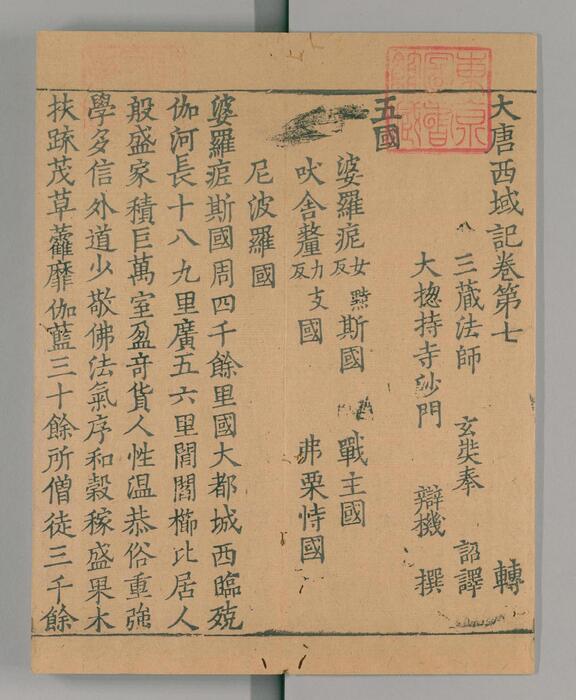 大唐西域記卷第七 轉
三藏法師 玄奘奉 詔譯
大揔持寺沙門 辯機 撰
五國
婆羅痆女黠反斯國 戰主國
吠舍釐力反支國 弗栗恃國
尼波羅國
婆羅痆斯國周四千餘里國大都城西臨殑
伽河長十八九里廣五六里閭閻櫛比居人
般盛家積巨萬室盈奇貨人性温恭俗重強
學多信外道少敬佛法氣序和穀稼盛果木
扶疎茂草藿靡伽藍三十餘所僧徒三千餘
東京